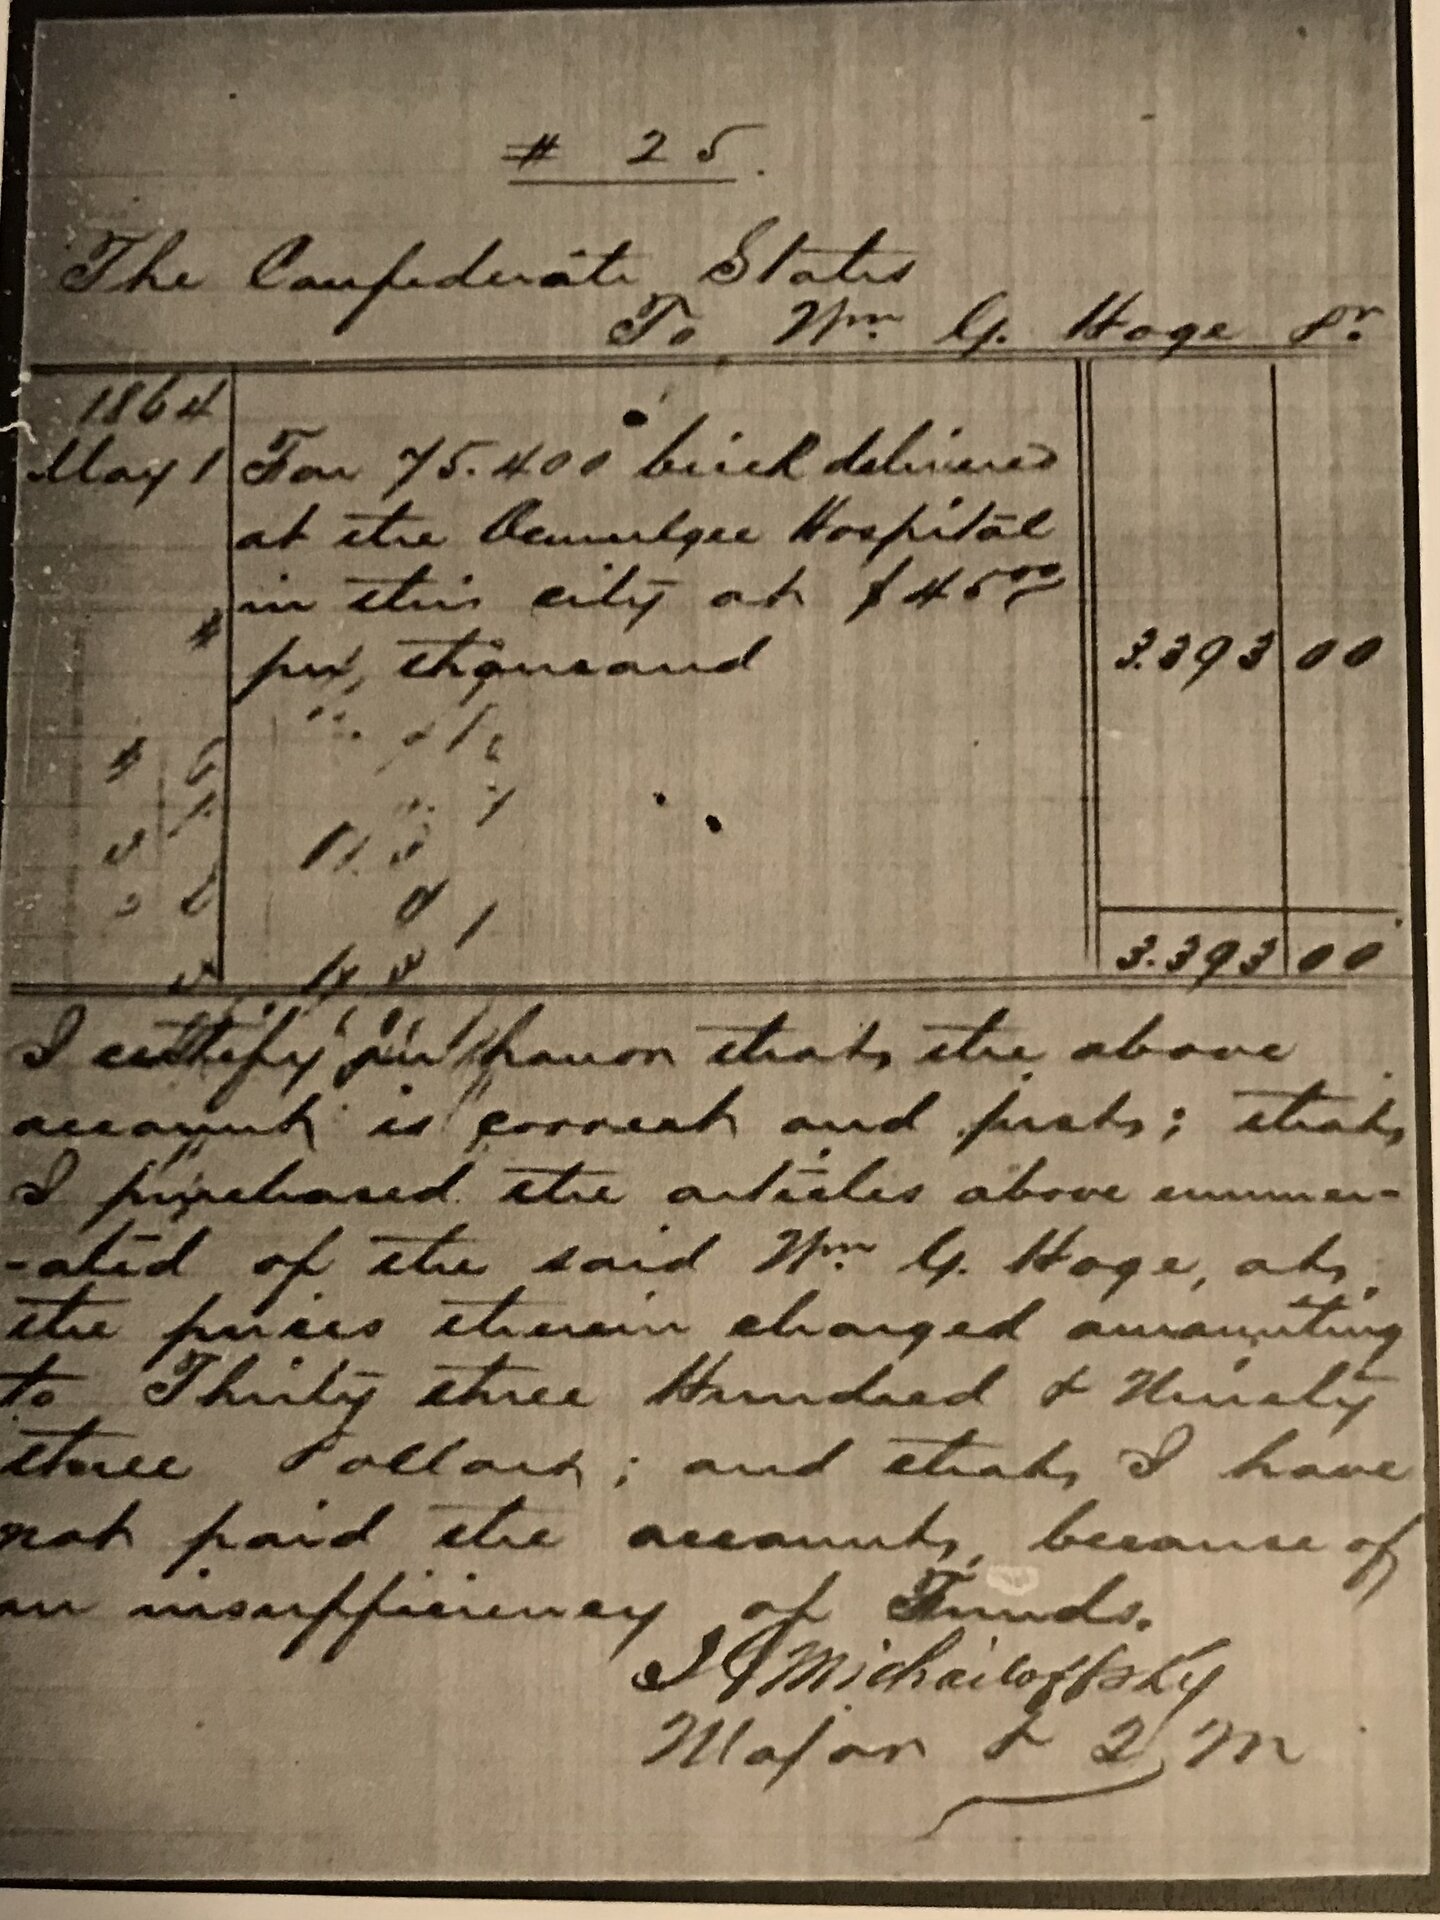 # 25.
The Confederate States
To Wm. G. Hoge Dr.
1864
May 1 For 75.400 brick delivered
at the Ocmulgee Hospital
in this city at $45.00
per, thousand 3.393 00
3.393 00
I certify on honor that, the above
account is correct and just; that,
I purchased the articles above enumer-
-ated of the said Wm. G. Hoge, at,
the prices therein charged amounting
to Thirty three Hundred & Ninety
three Dollars; and that, I have
not paid the account, because of
an insufficiency of Funds.
Michailoffsky
Major & Q M